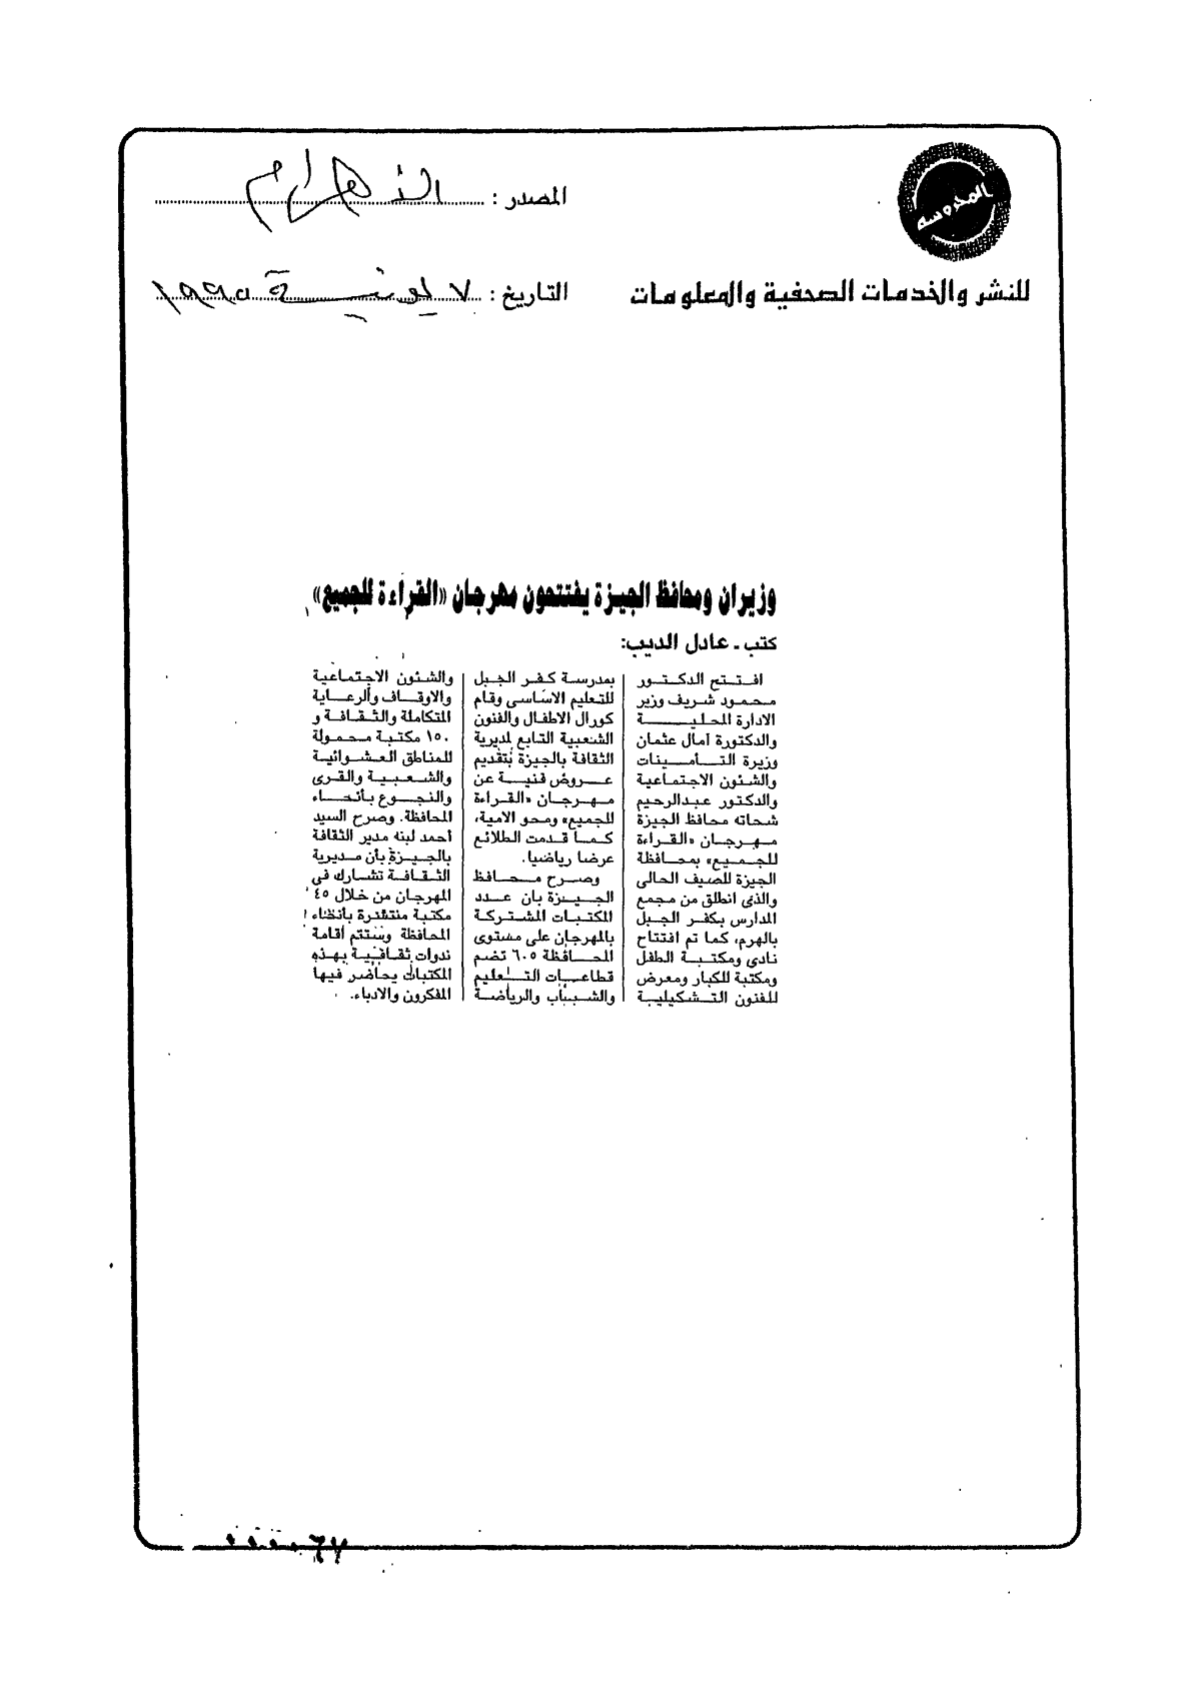 المحروسة
للنشر والخدمات الصحفية والمعلومات
المصدر : الأهرام
التاريخ : ٧ يونية ١٩٩٥
وزيران ومحافظ الجيزة يفتتحون مهرجان «القراءة للجميع»
كتب ـ عادل الديب:
افتتح الدكتور
محمود شريف وزير
الادارة المحلية
والدكتورة آمال عثمان
وزيرة التأمينات
والشئون الاجتماعية
والدكتور عبدالرحيم
شحاته محافظ الجيزة
مهرجان «القراءة
للجميع» بمحافظة
الجيزة للصيف الحالى
والذى انطلق من مجمع
المدارس بكفر الجبل
بالهرم، كما تم افتتاح
نادى ومكتبة الطفل
ومكتبة للكبار ومعرض
للفنون التشكيلية
بمدرسة كفر الجبل
للتعليم الاساسى وقام
كورال الاطفال والفنون
الشعبية التابع لمديرية
الثقافة بالجيزة بتقديم
عروض فنية عن
مهرجان «القراءة
للجميع» ومحو الامية،
كما قدمت الطلائع
عرضا رياضيا.
وصرح محافظ
الجيزة بان عدد
المكتبات المشتركة
بالمهرجان على مستوى
المحافظة ٦٠٥ تضم
قطاعات التعليم
والشباب والرياضة
والشئون الاجتماعية
والاوقاف والرعاية
المتكاملة والثقافة و
١٥٠ مكتبة محمولة
للمناطق العشوائية
والشعبية والقرى
والنجوع بأنحاء
المحافظة. وصرح السيد
أحمد لبنه مدير الثقافة
بالجيزة بأن مديرية
الثقافة تشارك فى
المهرجان من خلال ٤٥
مكتبة منتشرة بانحاء
المحافظة وستتم أقامة
ندوات ثقافية بهذه
المكتبات يحاضر فيها
المفكرون والادباء.